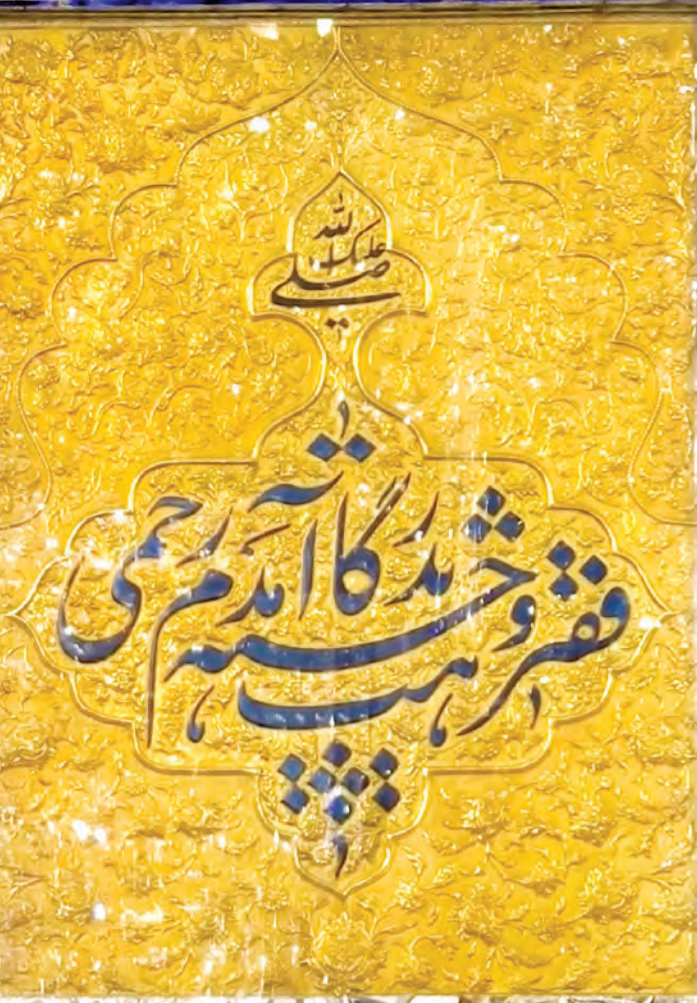 صلی الله علیک
فقیر و خسته بدرگاهت آمدم رحمی